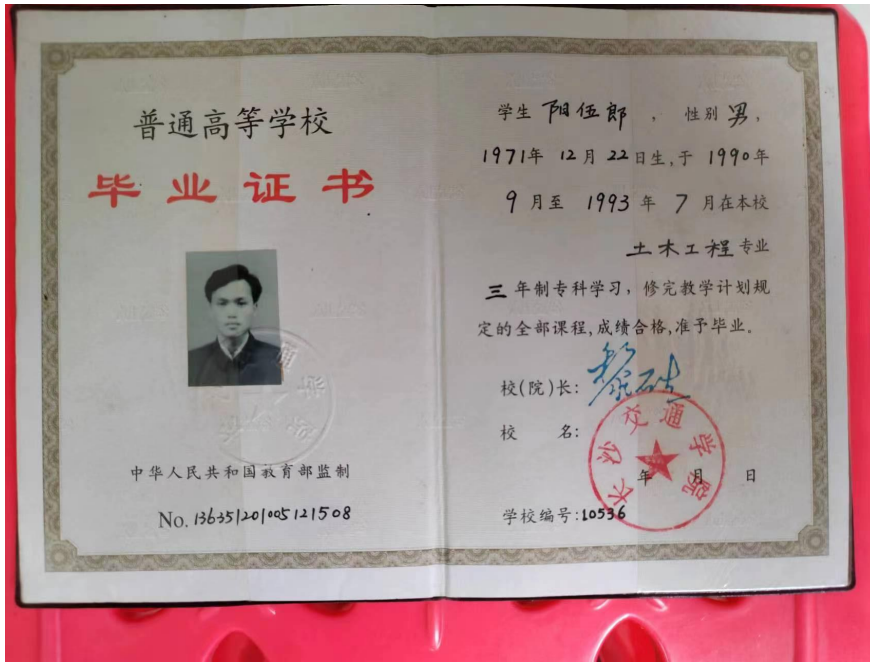 普通高等学校
毕业证书
中华人民共和国教育部监制
No. 136351201005121508
学生 阳伍郎 ，性别 男，
1971年 12月 22日生,于 1990年
9月至 1993年 7月在本校
土木工程专业
三年制专科学习，修完教学计划规
定的全部课程,成绩合格,准予毕业。
校(院)长:
校 名:
长沙交通学院
年 月 日
学校编号:10536